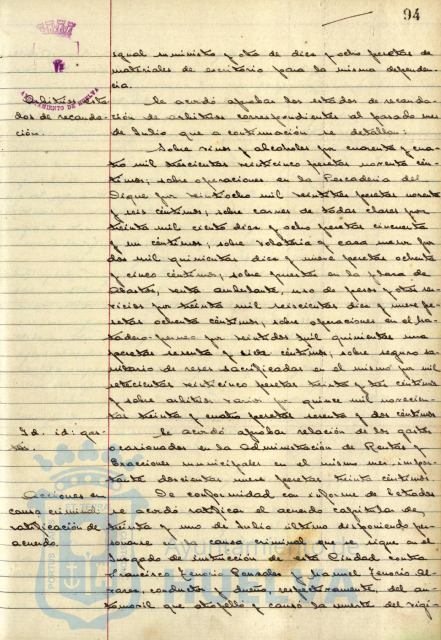 94
AYUNTAMIENTO DE HUELVA
igual suministro y otra de diez y ocho pesetas de
materiales de escritorio para la misma dependen-
cia.
Arbitrios esta-
dos de recauda-
ción.
Se acordó aprobar los estados de recauda-
ción de arbitrios correspondientes al pasado mes
de Julio que a continuación se detallan:
Sobre vinos y alcoholes por cuarenta y cua-
tro mil trescientas veinticinco pesetas noventa cén-
timos; sobre operaciones en la Pescadería del
Dique por veintiocho mil veintitres pesetas noventa
y seis céntimos; sobre carnes de todas clases por
treinta mil ciento diez y ocho pesetas cincuenta
y un céntimos; sobre volatería y caza menor por
dos mil quinientas diez y nueve pesetas ochenta
y cinco céntimos; sobre puestos en la plaza de
Abastos, venta ambulante, uso de pesos y otros ser-
vicios por treinta mil seiscientas diez y nueve pe-
setas ochenta céntimos; sobre operaciones en el ma-
tadero-porneo por veintidos mil quinientas una
pesetas sesenta y siete céntimos; sobre seguro sa-
nitario de reses sacrificadas en el mismo por mil
setecientas veinticinco pesetas treinta y tres céntimos
y sobre arbitrios varios por quince mil novecien-
tas treinta y cuatro pesetas sesenta y dos céntimos
Id. id: gas-
tos.
Se acordó aprobar relación de los gastos
ocasionados en la Administración de Rentas y
Exacciones municipales en el mismo mes impor-
tante doscientas nueve pesetas treinta céntimos
Acciones en
causa criminal:
ratificación de
acuerdo
De conformidad con informe de Letrados
se acordó ratificar el acuerdo capitular de
treinta y uno de Julio último disponiendo per-
sonarse en la causa criminal que se sigue en el
Juzgado de instrucción de esta Ciudad contra
Francisco Tenorio Gonzales y Manuel Tenorio Al-
varez, conductor y dueño, respectivamente, del au-
tomóvil que atropelló y causó la muerte del vigi-
Ayuntamiento de
HUELVA